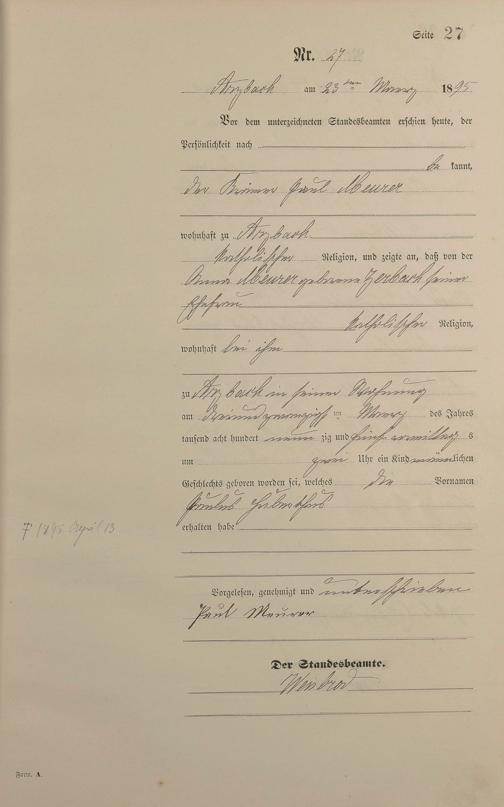 Seite 27
Nr. 27
Arzbach am 23 ten Maerz 1895
Vor dem unterzeichneten Standesbeamten erschien heute, der
Persönlichkeit nach
be kannt,
der Paul Meurer
wohnhaft zu Arzbach
katholischer Religion, und zeigte an, daß von der
Anna Meurer geborene Zerbach seiner
Ehefrau
katholischer Religion,
wohnhaft bei ihm
zu Arzbach in seiner Wohnung
am dreiundzwanzigst en Maerz des Jahres
tausend acht hundert neun zig und fünf vormittag s
um zwei Uhr ein Kind männlichen
Geschlechts geboren worden sei, welches die Vornamen
Paulus Hubertus
erhalten habe
† 1895 April 13
Vorgelesen, genehmigt und unterschrieben
Paul Meurer
Der Standesbeamte.
Weisbrod
Form. A.